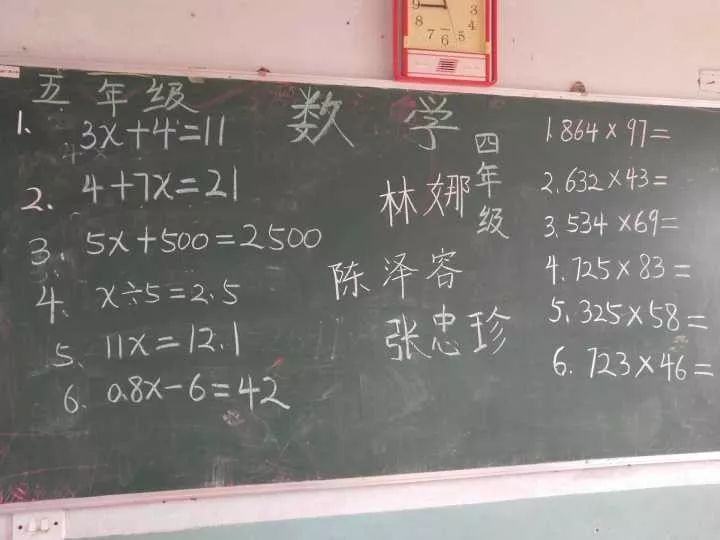 数学
五年级
1. 3x+4=11
2. 4+7x=21
3. 5x+500=2500
4. x÷5=2.5
5. 11x=12.1
6. 0.8x-6=42
林娜
陈泽容
张忠珍
四年级
1.864×97=
2.632×43=
3.534×69=
4.725×83=
5.325×58=
6.723×46=
9
8
7
6
5
4
3